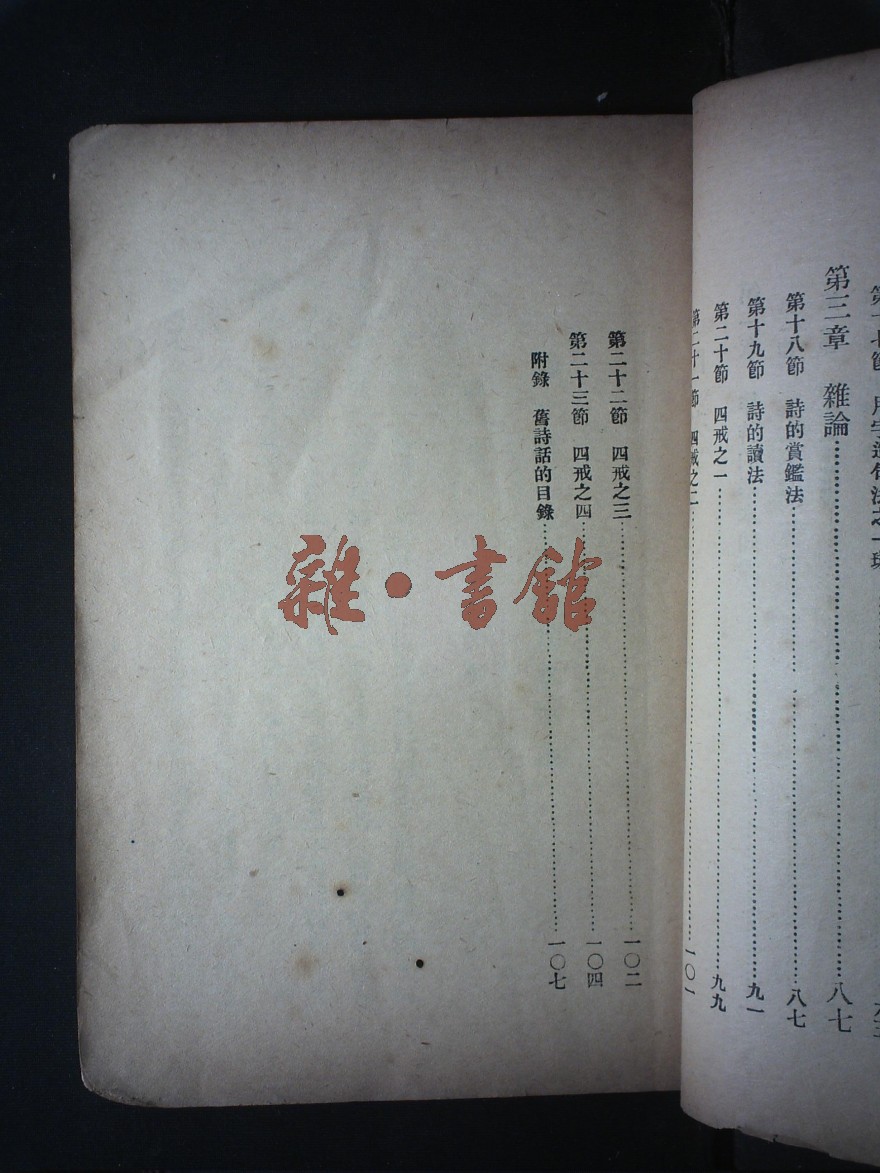 第三章　雜論……八七
第十八節　詩的賞鑑法……八七
第十九節　詩的讀法……九一
第二十節　四戒之一……九九
第二十一節　四戒之二……一〇一
第二十二節　四戒之三……一〇二
第二十三節　四戒之四……一〇四
附錄　舊詩話的目錄……一〇七
雜·書舘